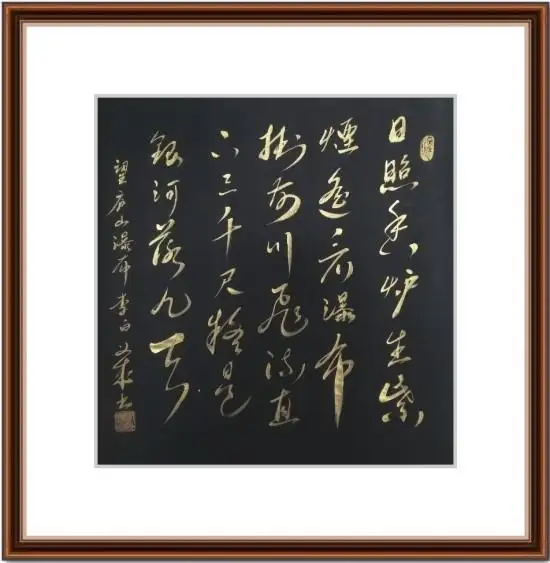 日照香炉生紫
煙遥看瀑布
掛前川飛流直
下三千尺疑是
銀河落九天
望庐山瀑布 李白 书